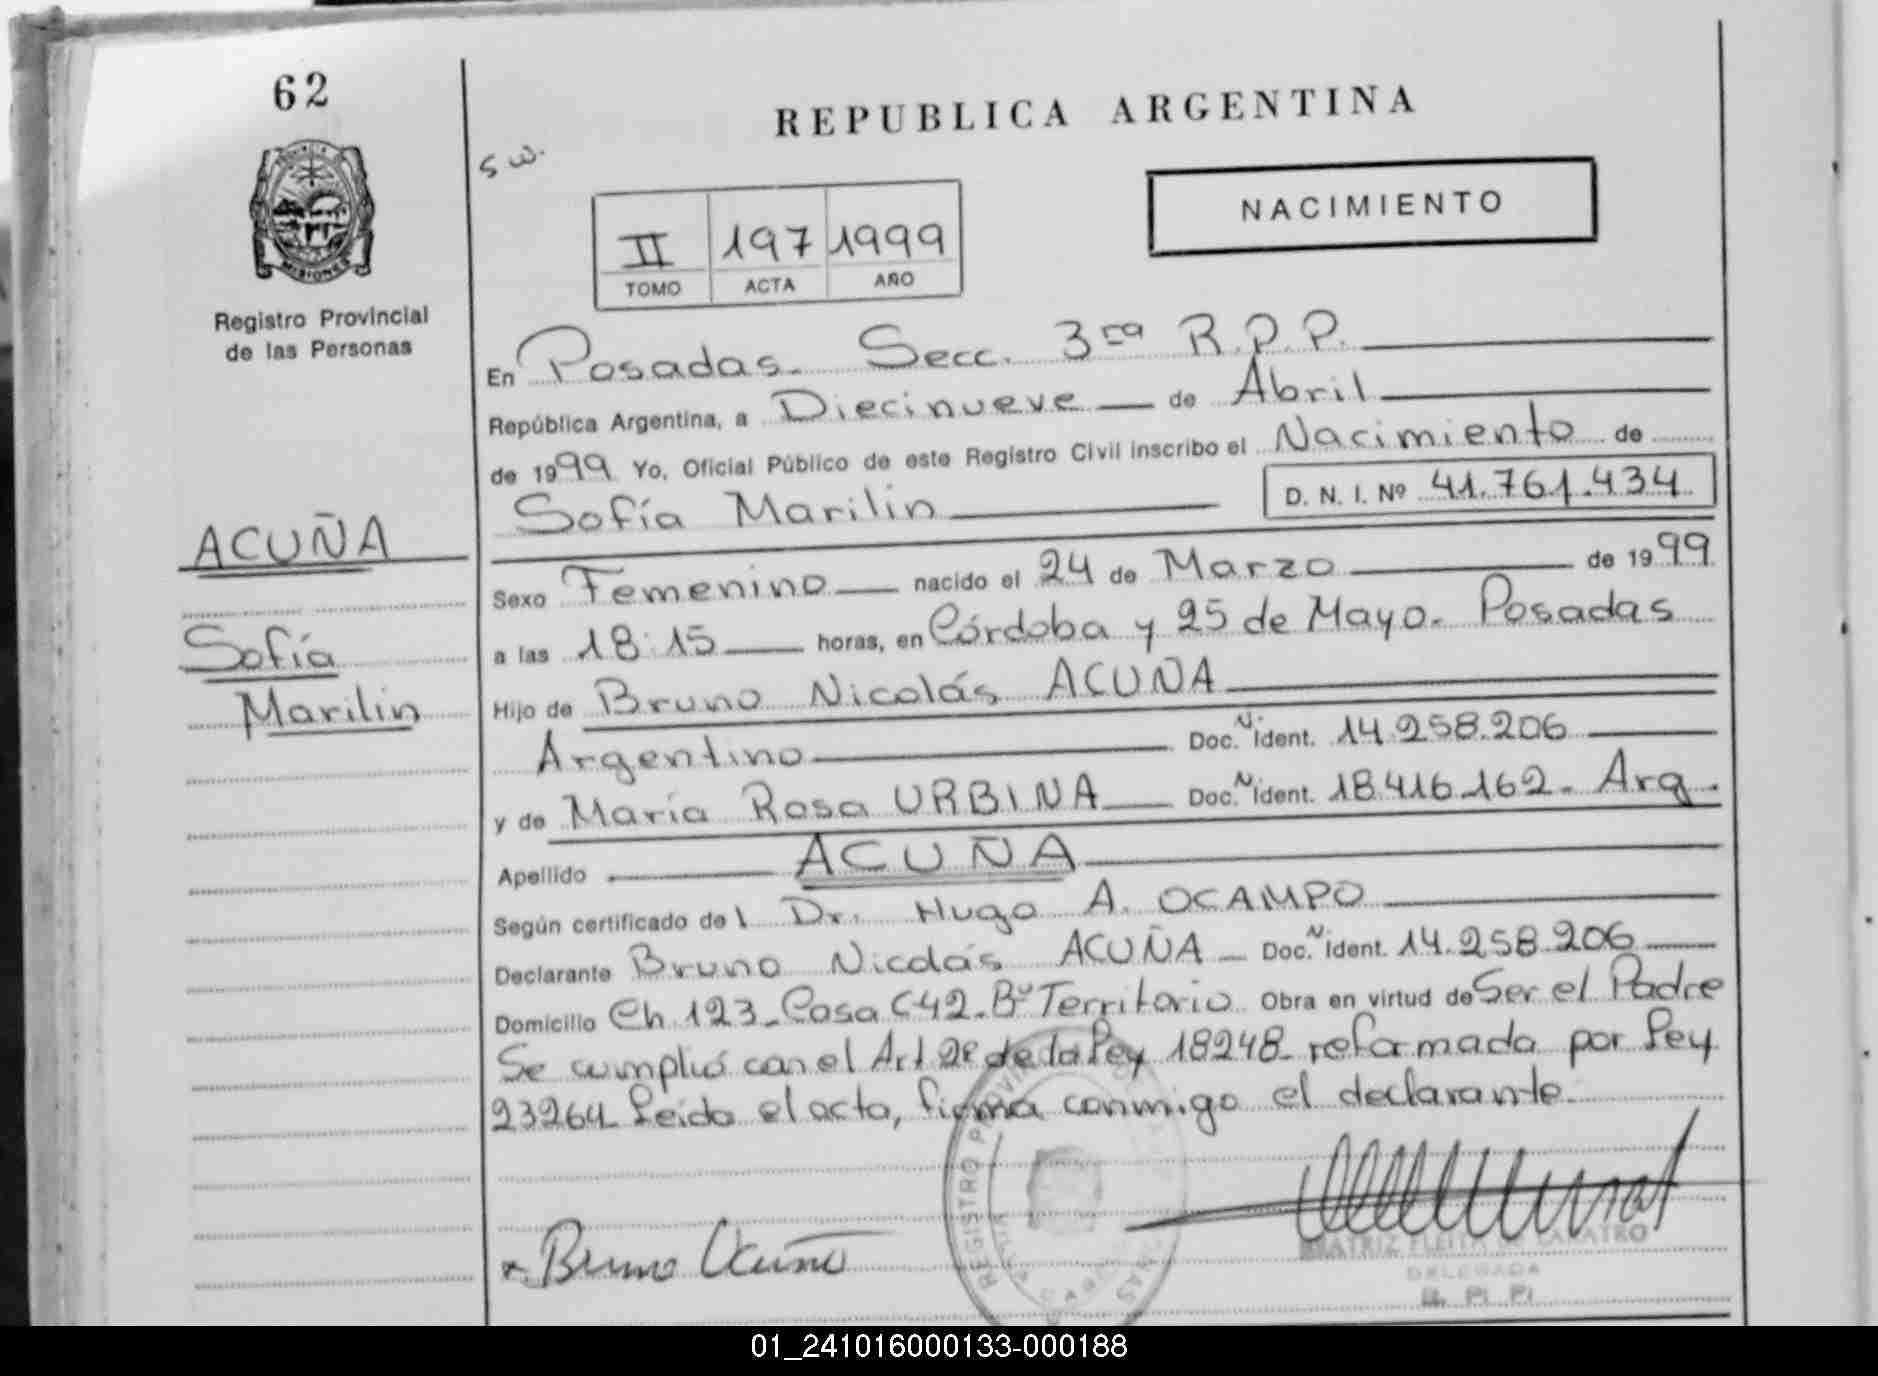 62
REPUBLICA ARGENTINA
s w.
NACIMIENTO
II 197 1999
TOMO ACTA AÑO
PROVINCIA DE
MISIONES
Registro Provincial
de las Personas
En Posadas. Secc. 3ra R.P.P.
República Argentina, a Diecinueve de Abril
de 1999 Yo, Oficial Público de este Registro Civil inscribo el Nacimiento de
Sofía Marilin D. N. I. Nº 41.761.434
ACUÑA
Sofía
Marilin
Sexo Femenino nacido el 24 de Marzo de 1999
a las 18:15 horas, en Córdoba y 25 de Mayo. Posadas
Hijo de Bruno Nicolás ACUÑA
Argentino Doc. N. Ident. 14.258.206
y de María Rosa URBINA Doc. N Ident. 18.416.162. Arg.
Apellido ACUÑA
Según certificado del Dr. Hugo A. OCAMPO
Declarante Bruno Nicolás ACUÑA Doc. N Ident. 14.258.206
Domicilio Ch 123. Casa C42. Bº Territorio Obra en virtud de Ser el Padre
Se cumplió con el Art 2º de la Ley 18248 reformada por Ley
23264 Leida el acta, firma conmigo el declarante.
Bruno Acuña
REGISTRO PROVINCIAL
BEATRIZ FLEITA
DELEGADA
R. P. P.
01_241016000133-000188